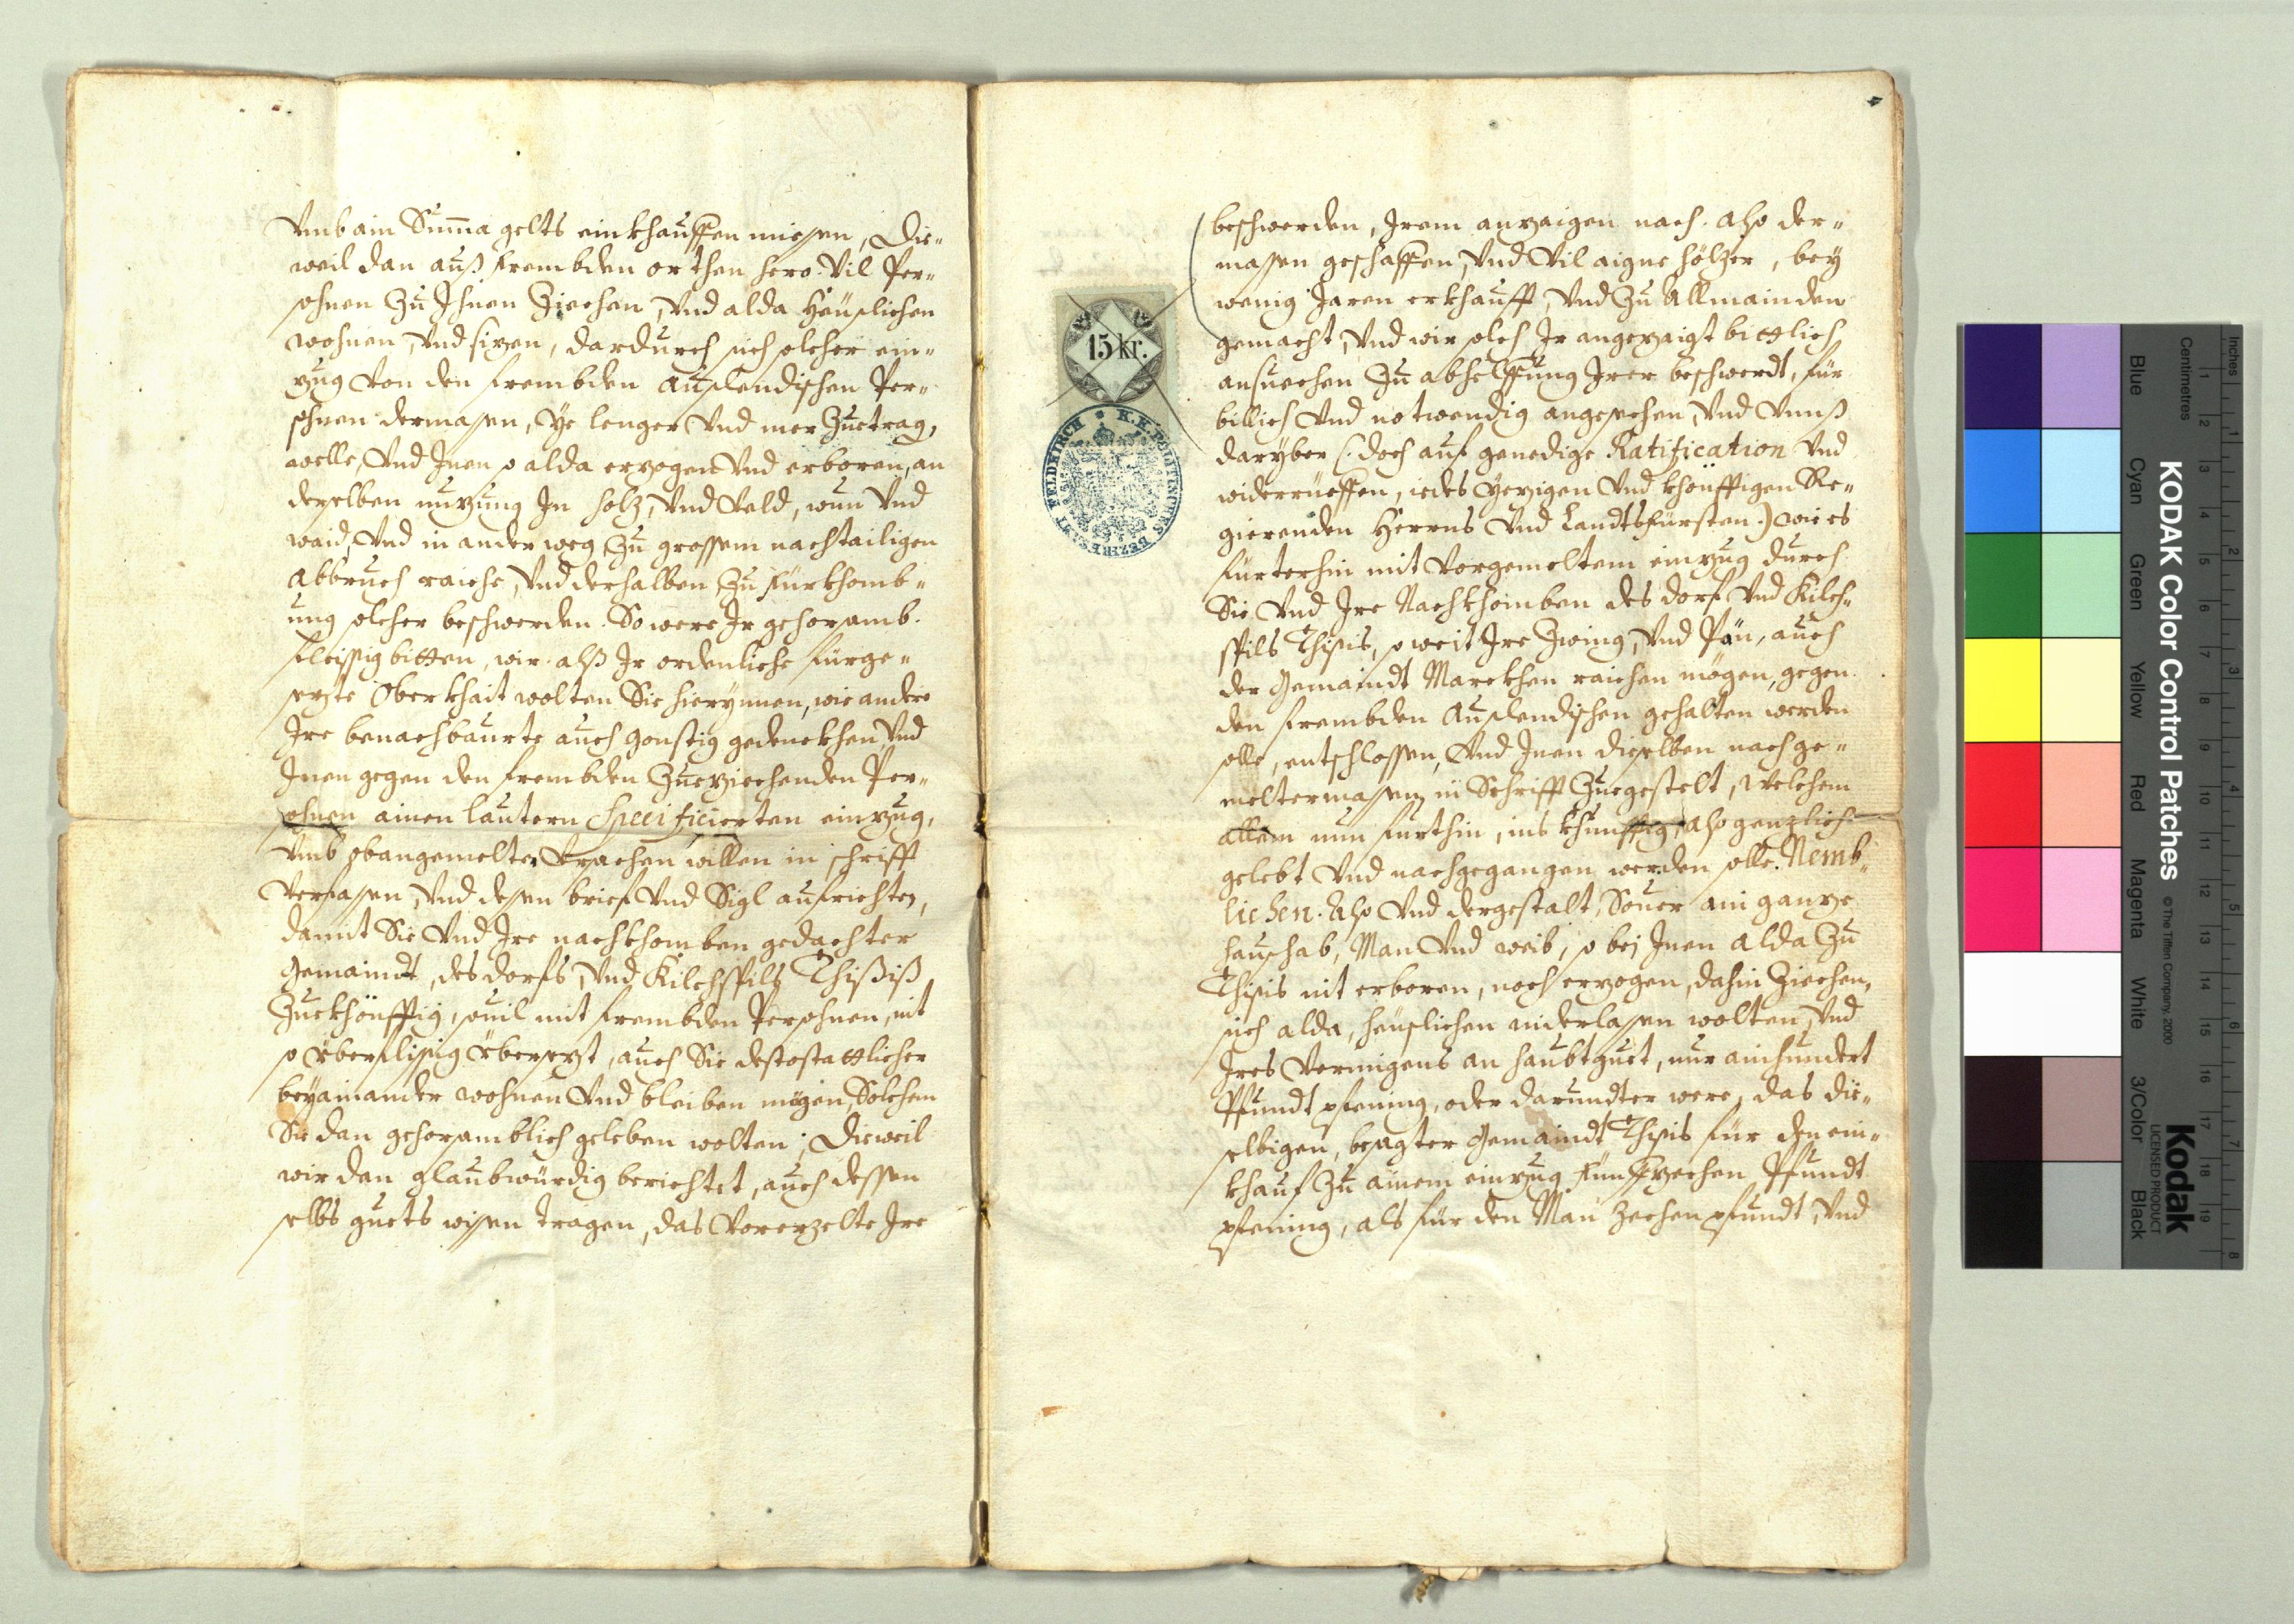 Vmb ain Suma gelts einkhauffen miesen, Die-
weil dan auß frembden orthen hero. Vil Per-
sohnen Zu Ihnen Ziechen, Vnd alda Heuslichen
wohnen, Vnd sizen, dardurch sich solcher ein-
zug von den frembden Auslendischen Per-
sohnen dermasen, ye lenger Vnd mer Zuetrag,
welle, Vnd Inen so alda erzogen Vnd erboren, an
derselben nuzung In holz, Vnd Veld, wun Vnd
waid, Vnd in ander weg Zu grossem nachtailigen
Abbruch raiche, Vnd derhalben Zu fürkhomb-
ung solcher beschwerden. So were Ir gehorsamb.
fleissig bitten, wir alß Ir ordenliche fürge-
sezte Oberkhait wolten Sie hierynnen, wie andere
Ire benachbaurte auch gonstig gedenckhen, Vnd
Inen gegen den frembden Zueziechenden Per-
sohnen ainen lautern Specificierten einzug,
Vmb obangemelter Vrsachen willen in schrifft
Verfassen, Vnd desen brief Vnd Sigl aufrichten,
damit Sie Vnd Ire nachkhomben gedachter
Gemaindt, des dorfs, Vnd Kilchspils Thißiß
Zuekhönfftig, souil mit frembden Persohnen, nit
so yberflissig ybersezt, auch Sie destostattlicher
beyainander wohnen Vnd bleiben mögen, Solchem
Sie dan gehorsamblich geleben wolten; Dieweil
wir dan glaubwürdig berichtet, auch dessen
selbs guets wisen tragen, das Vorerzelte Ire
beschwerden, Irem anzaigen nach. also der-
massen geschaffen, Vnd Vil aigne hölzer, bey
wenig Jaren erkhaufft, Vnd Zu Allmainden
gemacht, Vnd wir solch Ir angezaigt bittlich
ansuechen Zu abhelffung Irer beschwerdt, für
billich Vnd notwendig angesechen, Vnd Vnnß
daryber (: doch auf genedige Ratification Vnd
widerrüeffen, iedes yezigen Vnd khönfftigen Re-
gierenden Herrns Vnd Landtsfürsten :) wie es
fürterhin mit vorgemeltem einzug durch
Sie Vnd Ire Nachkhomben des dorf Vnd Kilch-
spils Thisis, so weit Ire Zwing, Vnd Pän, auch
der Gemaindt Marckhen raichen mögen, gegen
den frembden Auslendischen gehalten werden
solle, entschlossen, Vnd Inen dieselben nachge-
meltermasen in Schrifft Zuegestelt, Welchem
allem nun fürthin, ins khünfftig, also genzlich
gelebt Vnd nachgegangen werden solle. Nemb-
lichen. Also Vnd dergestalt, Souer ain ganze
haushab, Man Vnd weib, so bej Inen alda Zu
Thisis nit erboren, noch erzogen, dahin Ziechen,
sich alda, heuslichen niderlassen wolten, Vnd
Ires Vermigens an haubtguet, nur ainhundert
Pfundt pfening, oder darundter were, das die-
selbigen, besagter Gemaindt Thisis für den ein-
khauf Zu ainem einzug Fünffzechen Pfundt
pfening, als für den Man zechen pfundt, Vnd
15 kr.
K. K. POLITISCHES BEZIRKSAMT FELDKIRCH
KODAK Color Control Patches
© The Tiffen Company, 2000
Kodak
LICENSED PRODUCT
Inches
Centimetres
1 2 3 4 5 6 7 8
1 2 3 4 5 6 7 8 9 10 11 12 13 14 15 16 17 18 19
Blue Cyan Green Yellow Red Magenta White 3/Color Black